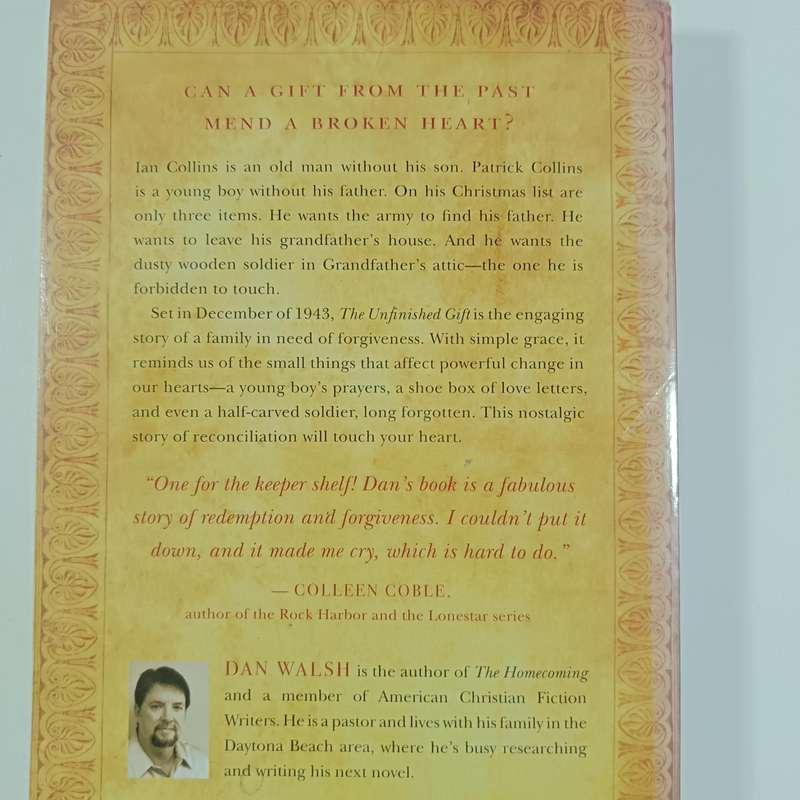 CAN A GIFT FROM THE PAST
MEND A BROKEN HEART?
Ian Collins is an old man without his son. Patrick Collins
is a young boy without his father. On his Christmas list are
only three items. He wants the army to find his father. He
wants to leave his grandfather's house. And he wants the
dusty wooden soldier in Grandfather's attic—the one he is
forbidden to touch.
Set in December of 1943, The Unfinished Gift is the engaging
story of a family in need of forgiveness. With simple grace, it
reminds us of the small things that affect powerful change in
our hearts—a young boy's prayers, a shoe box of love letters,
and even a half-carved soldier, long forgotten. This nostalgic
story of reconciliation will touch your heart.
"One for the keeper shelf! Dan's book is a fabulous
story of redemption and forgiveness. I couldn't put it
down, and it made me cry, which is hard to do."
— COLLEEN COBLE,
author of the Rock Harbor and the Lonestar series
DAN WALSH is the author of The Homecoming
and a member of American Christian Fiction
Writers. He is a pastor and lives with his family in the
Daytona Beach area, where he's busy researching
and writing his next novel.